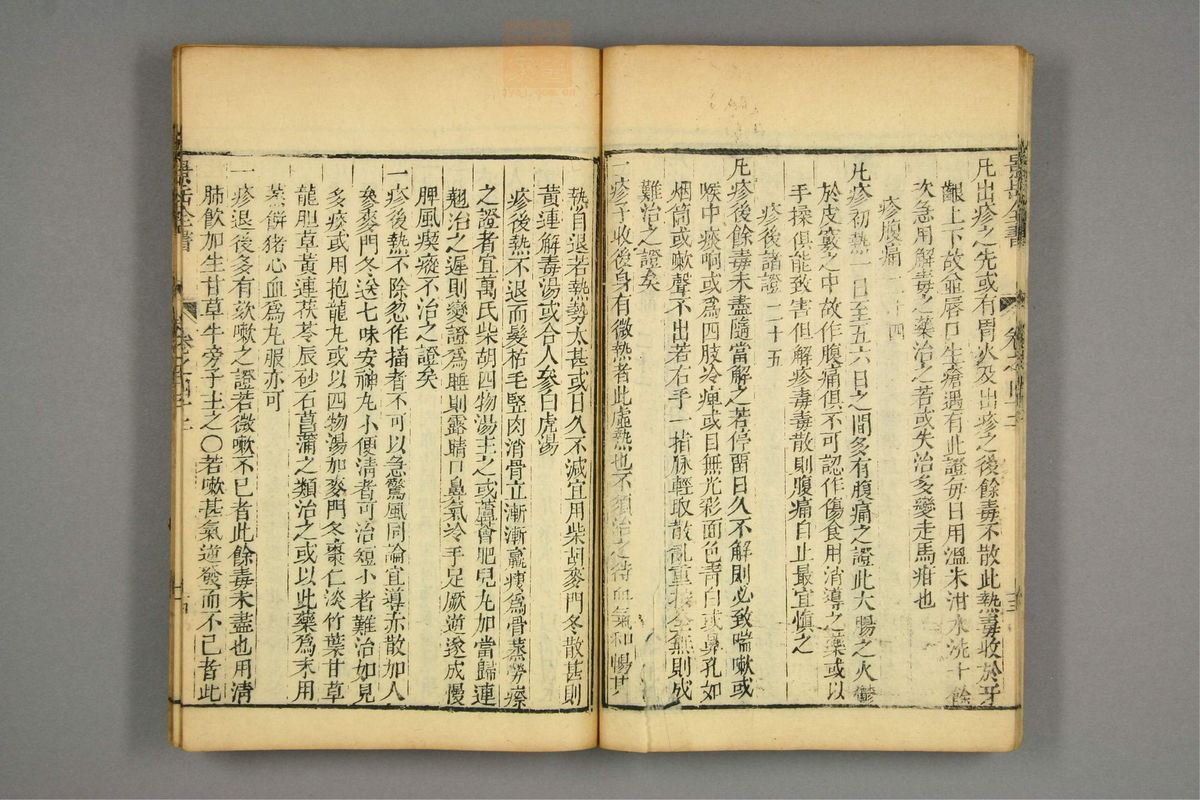 景岳全書
凡出疹之先或有胃火及出疹之後餘毒不散此熱毒收於牙
齦上下故並唇口生瘡遇有此證每日用溫米泔水洗十餘
次急用解毒之藥治之若或失治多變走馬疳也
疹腹痛二十四
凡疹初熱一日至五六日之間多有腹痛之證此大腸之火鬱
於皮竅之中故作腹痛俱不可認作傷食用消導之藥或以
手揉俱能致害但解疹毒毒散則腹痛自止最宜慎之
疹後諸證二十五
凡疹後餘毒未盡隨當解之若停畱日久不解則必致喘嗽或
喉中痰响或爲四肢冷痺或目無光彩面色青白或鼻孔如
烟筒或嗽聲不出若右手一指脉輕取散亂重按全無則成
難治之證矣
一疹子收後身有微熱者此虛熱也不須治之待血氣和暢其
熱自退若熱勢太甚或日久不減宜用柴胡麥門冬散甚則
黃連解毒湯或合人參白虎湯
疹後熱不退而髮枯毛竪肉消骨立漸漸羸瘦爲骨蒸勞瘵
之證者宜萬氏柴胡四物湯主之或蘆薈肥兒丸加當歸連
翹治之遲則變證爲睡則露睛口鼻氣冷手足厥逆遂成慢
脾風瘈瘲不治之證矣
一疹後熱不除忽作搐者不可以急驚風同論宜導赤散加人
參麥門冬送七味安神丸小便清者可治短小者難治如見
多痰或用抱龍丸或以四物湯加麥門冬棗仁淡竹葉甘草
龍胆草黃連茯苓辰砂石菖蒲之類治之或以此藥爲末用
蒸餅猪心血爲丸服亦可
一疹退後多有欬嗽之證若微嗽不已者此餘毒未盡也用清
肺飲加生甘草牛旁子主之○若嗽甚氣逆發而不已者此
景岳全書
卷之四十三